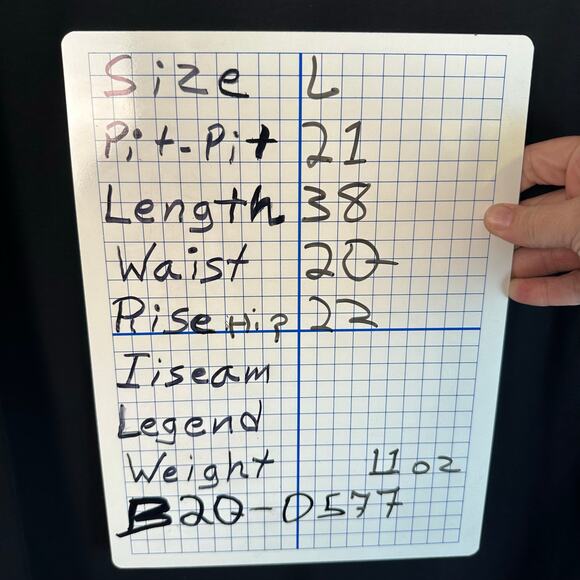 Size L
Pit-Pit 21
Length 38
Waist 20
Rise Hip 22
Iiseam
Legend
Weight 11 oz
B20-0577